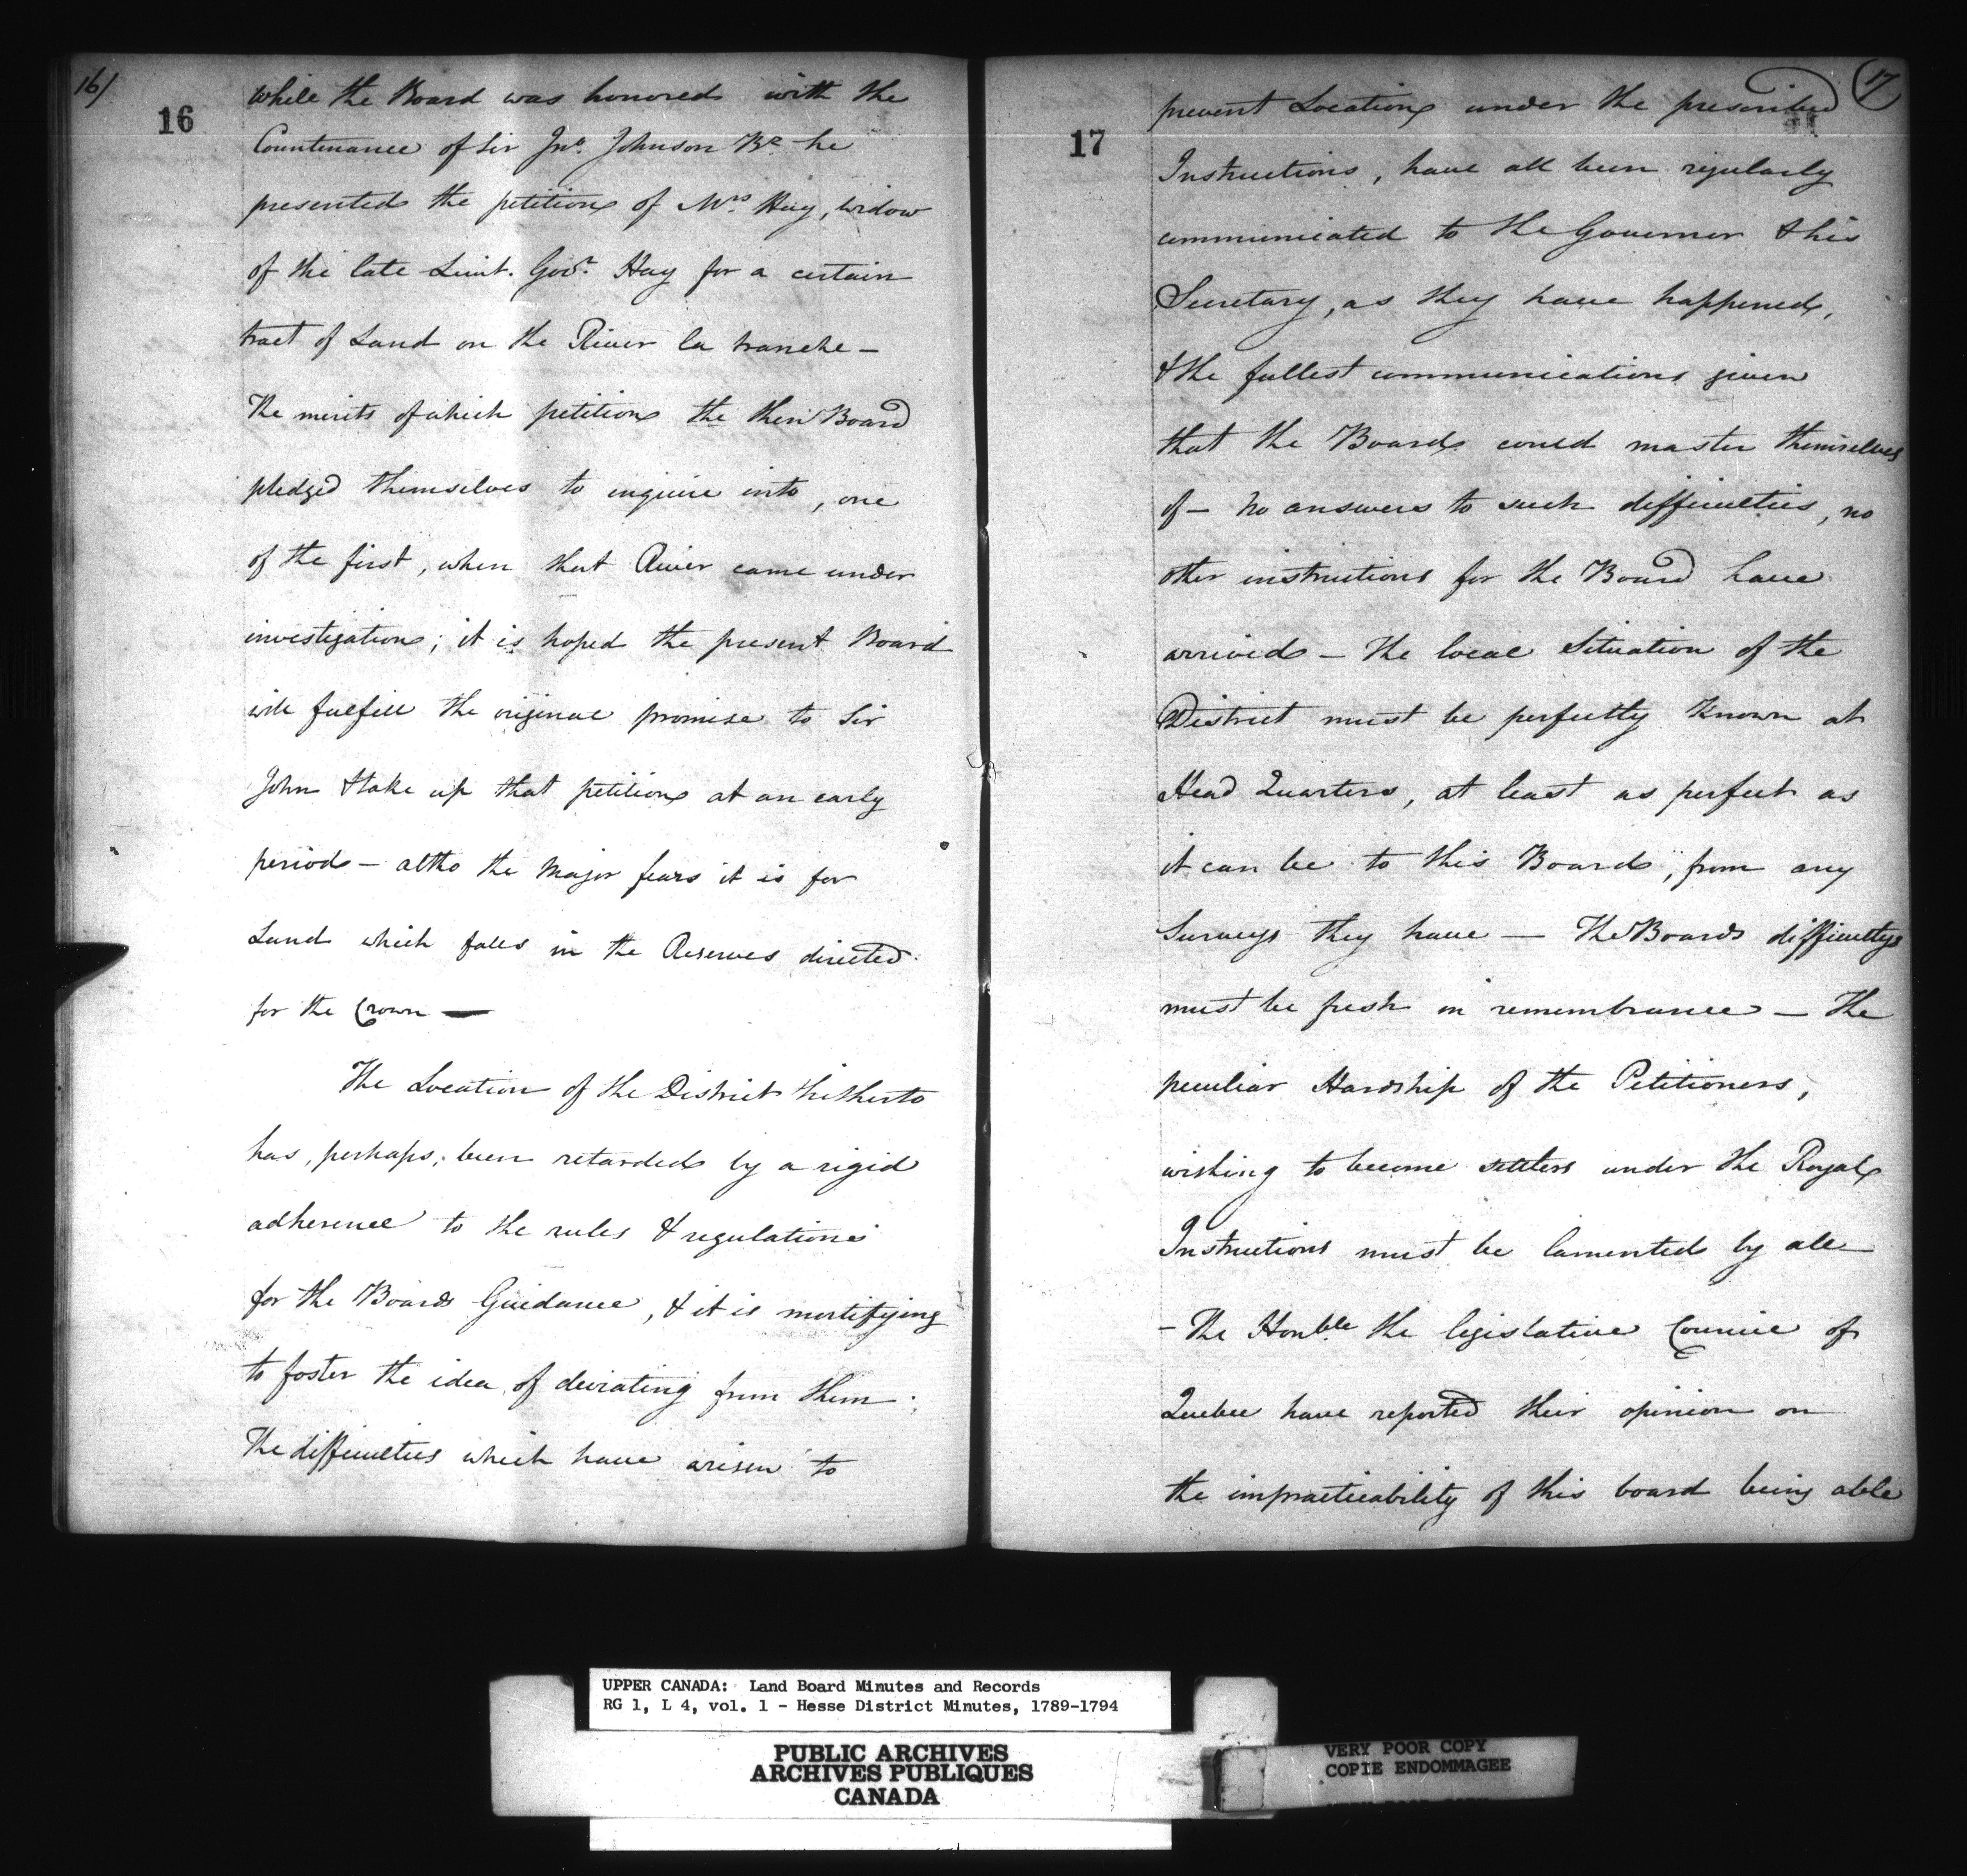 16/
16
while the Board was honored with the
Countenance of Sir Jno. Johnson Bt. he
presented the petition of Mrs. Hay, widow
of the late Lieut. Govr. Hay for a certain
tract of Land on the River la tranche —
The merits of which petition the then Board
pledged themselves to inquire into, one
of the first, when that River came under
investigation; it is hoped the present Board
will fulfill the original promise to Sir
John & take up that petition at an early
period — altho the Major fears it is for
Land which falls in the Reserves directed
for the Crown —
The Location of the District hitherto
has, perhaps, been retarded by a rigid
adherence to the rules & regulations
for the Boards Guidance, & it is mortifying
to foster the idea of deviating from them;
The difficulties which have arisen to
17
17
prevent Location under the prescribed
Instructions, have all been regularly
communicated to the Governor & his
Secretary, as they have happened,
& the fullest communications given
that the Board could master themselves
of — no answers to such difficulties, no
other instructions for the Board have
arrived — The local Situation of the
District must be perfectly Known at
Head Quarters, at least as perfect as
it can be to this Board, from any
Surveys they have — The Boards difficultys
must be fresh in remembrance — The
peculiar Hardship of the Petitioners,
wishing to become settlers under the Royal
Instructions must be lamented by all
- The Honble. the legislative Council of
Quebec have reported their opinion on
the impracticability of this board being able
UPPER CANADA: Land Board Minutes and Records
RG 1, L 4, vol. 1 - Hesse District Minutes, 1789-1794
PUBLIC ARCHIVES
ARCHIVES PUBLIQUES
CANADA
VERY POOR COPY
COPIE ENDOMMAGEE